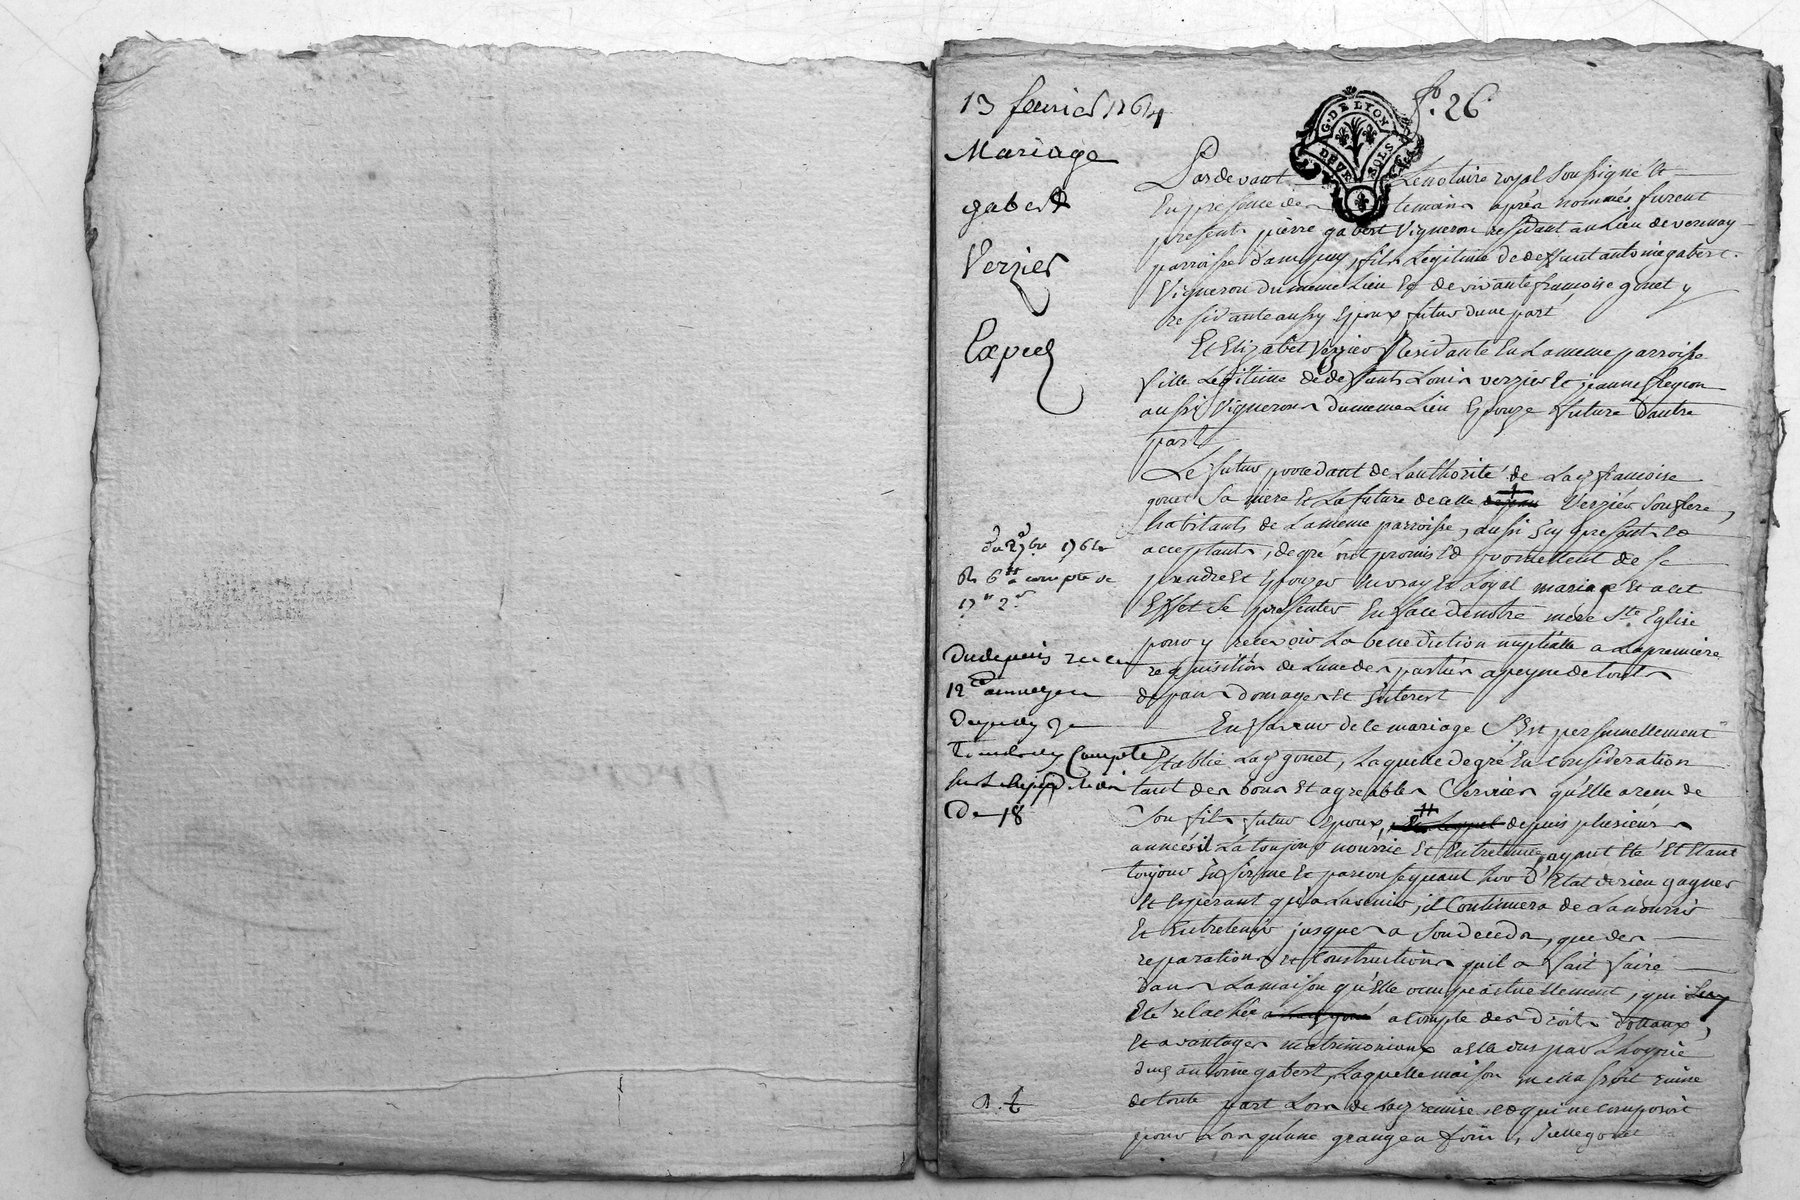 13 fevrier 1764
fo. 26
Mariage
gabert
Verzier
Expéd
G. DE LYON
DEUX SOLS
Pardevant Le notaire royal soussigné Et
En presence des temoins après nommés furent
presents pierre gabert Vigneron residant au Lieu de vernay
parroisse d'ampuy, fils Legitime de deffunt antoine gabert
Vigneron du meme Lieu Et de vivante françoise gonet y
residante aussy Epoux futur dune part
Et Elizabet Verzier Residante En La meme parroisse
fille Legitime de deffunts Louis verzier Et jeanne
aussy Vignerons du meme Lieu Epouze future dautre
part
Le futur procedant de Lauthorité de Lad françoise
gonet Sa mere Et La future de celle Verzier son frere,
habitants de La meme parroisse, aussi Icy presents Et
acceptants, de gré ont promis Et promettent de se
prendre Et Epouzer En vray Et Loyal mariage Et a cet
Effet se presenter En face de notre mere Ste Eglise
pour y recevoir La benediction nuptialle a La premiere
requisition de Lune des parties a peyne de touts
depans domages Et Interest
En faveur de ce mariage S'est personnellement
Etablie Lad gonet, Laquelle de gré En Consideration
tant des bons Et agreables Services qu'Elle a recu de
Son fils futur Epoux, depuis plusieurs
années il La toujours nourrie Et Entretenue, ayant Eté Et Etant
toujours Infirme Et par consequant hors d'Etat de rien gagner
Et Esperant qu'a Lavenir, il Continuera de La nourrir
Et Entretenir jusques a Son deceds, que des
reparations Et Constructions quil a fait faire
dans La maison qu'Elle occupe actuellement, qui
Eté relachée a compte des Droits dottaux,
Et avantages matrimoniaux a Elle dus par L'hoyrie
dud antoine gabert, Laquelle maison menassoit ruine
de toute part Lors de Lad remise, Et qui ne composoit
pour Lors qu'une grange a foin,
du 1764
6 a compte de
Dudepuis recu
12
Compte
De 18